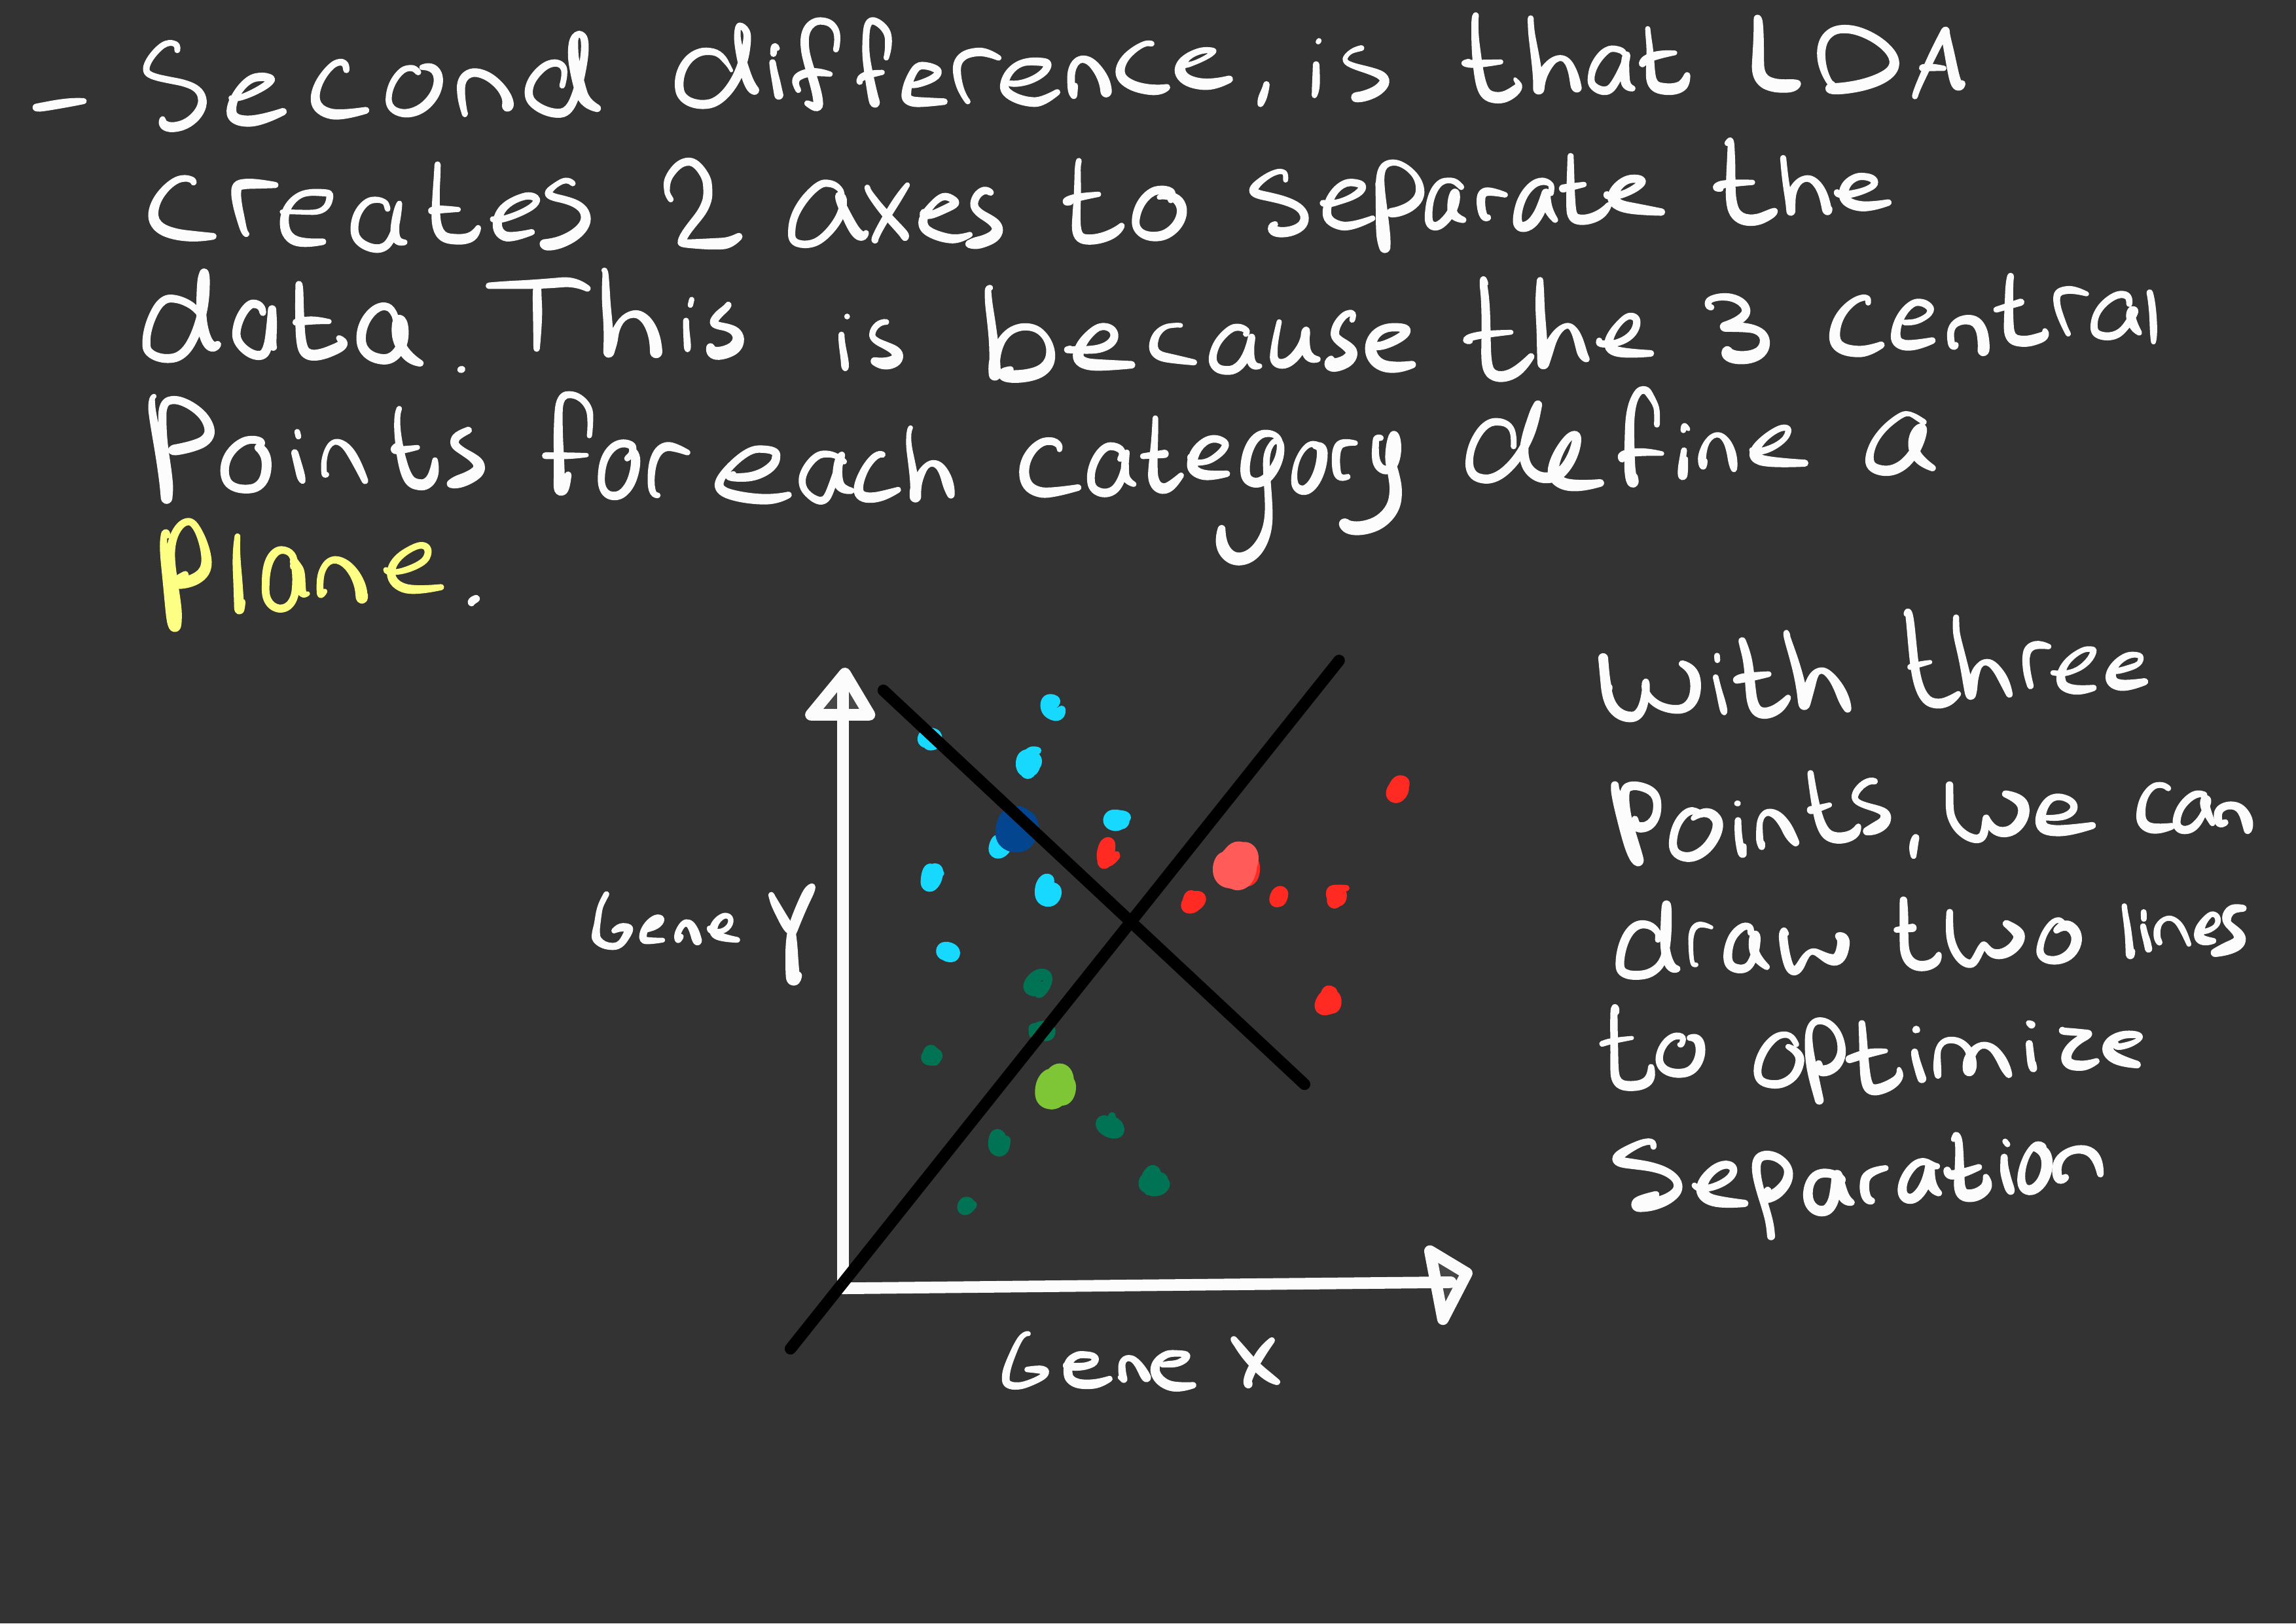 - Second difference, is that LDA
creates 2 axes to separate the
data. This is because the 3 central
Points for each category define a
Plane.
With three
Points, we can
draw two lines
to optimize
Separation
Gene Y
Gene X